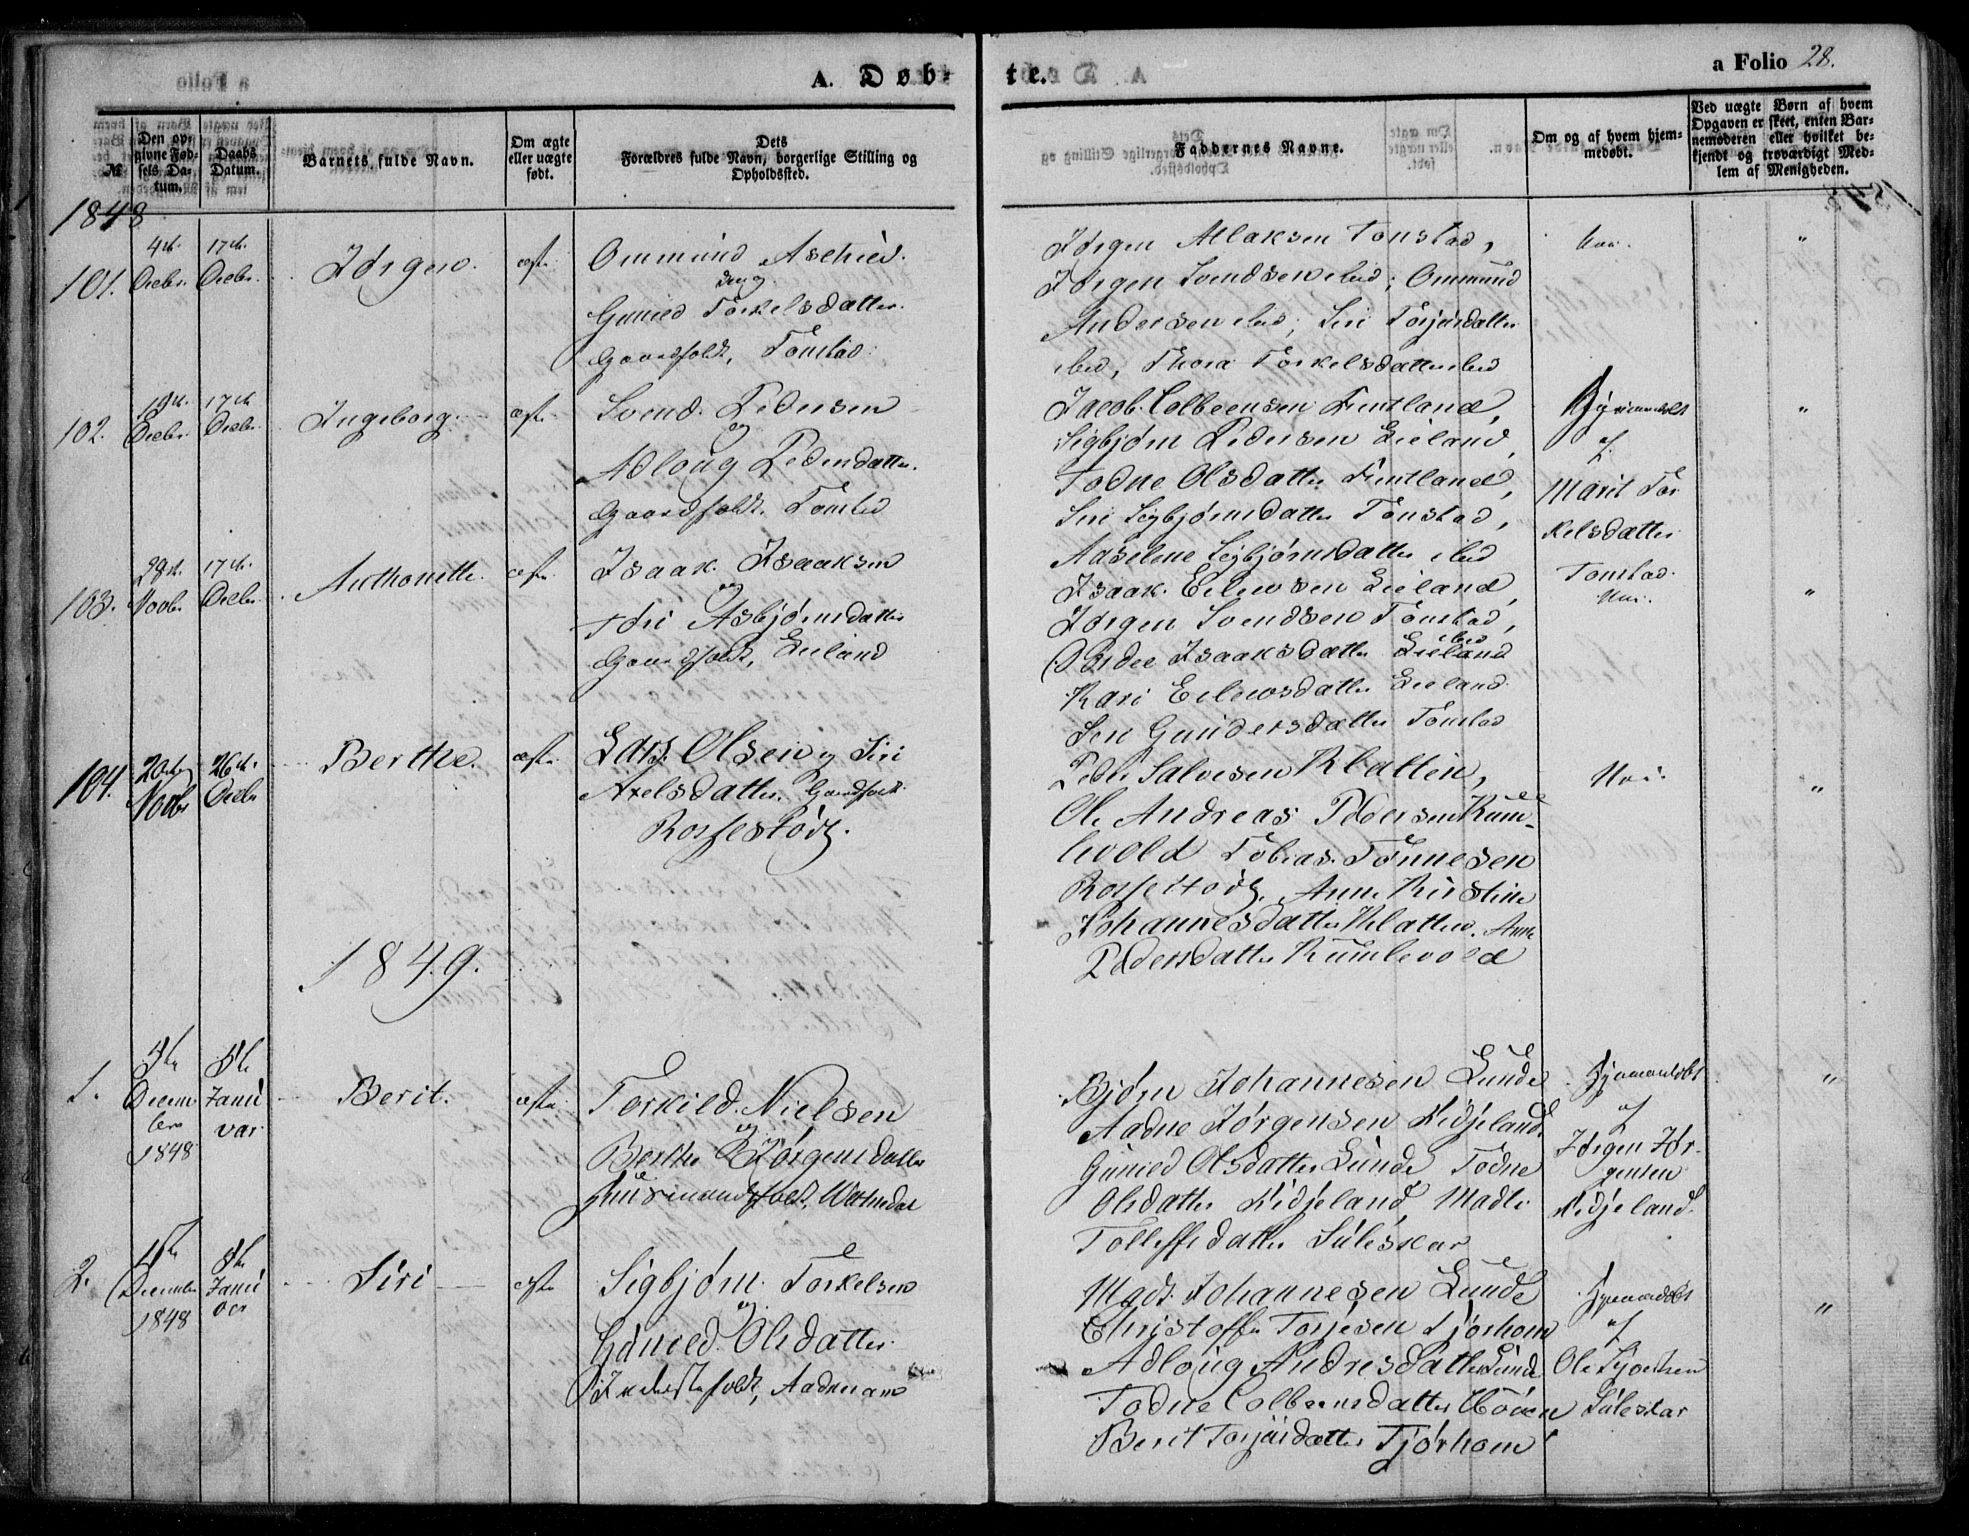 A. Døb-
te.
a Folio 28.
№
Den op-
givne Fød-
sels Da-
tum.
Daabs
Datum.
Barnets fulde Navn.
Om ægte
eller uægte
født.
Dets
Forældres fulde Navn, borgerlige Stilling og
Opholdssted.
Faddernes Navne.
Om og af hvem hjem-
medøbt.
Ved uægte Børn af hvem
Opgaven er skeet, enten Bar-
nemoderen eller hvilket be-
kjendt og troværdigt Med-
lem af Menigheden.
1848
101.
4de
Decbr.
17de
Decbr.
Jørgen.
ægte
Ommund
og
Gunild Torkelsdatter.
Gaardfolk, Tonstad.
Jørgen Atlaksen Tonstad,
Jørgen Svendsen ibid; Ommund
Andersen ibid, Siri Torjusdatter
ibid, Thora Torkelsdatter ibid
Nei.
"
102.
Decbr.
17de
Decbr.
Ingeborg.
ægte
Svend Pedersen
og
Adloug Pedersdatter.
Gaardfolk. Tonstad
Jacob Colbeensen Fintland,
Sigbjørn Pedersen Eieland,
Todne Olsdatter Fintland,
Siri Sigbjørnsdatter Tonstad,
Aaselene Sigbjørnsdatter ibid
Hjemmedøbt
af
Marit Tor
kelsdatter
Tonstad.
"
103.
29de
Novbr
17de
Decbr.
Anthonette.
ægte
Isaak Isaaksen
og
Tøri Asbjørnsdatter
Gaardfolk, Eieland
Isaak Eilewsen Eieland,
Jørgen Svendsen Tonstad,
Isaaksdatter Eieland
ibid
Kari Eilewsdatter Eieland
Siri Gundersdatter Tonstad
Nei.
"
104.
20de
Novbr
26de
Decbr
Berthe.
ægte
Lars Olsen og Siri
Axelsdatter. Gaardfolk.
Rossestød.
Peder Salvesen Klatten,
Ole Andreas Pedersen Kum-
levold Tobias Tønnesen
Rossestød, Anne Kirstine
Johannesdatter Klatten. Anne
Pedersdatter Kumlevold
Nei.
"
1849.
1.
Decem
ber
1848
Janu
var
Berit.
ægte
Torkild Nielsen
og
Berthe Jørgensdatter
Huusmandsfolk, Watnedal
Bjørn Johannesen Lunde
Aadne Jørgensen Kidjeland
Gunild Olsdatter Lunde Todne
Olsdatter Kidjeland, Madli
Tolleffsdatter Suleskar
Hjemmedøbt
af
Jørgen Jør-
gensen
Kidjeland.
"
2.
December
1848
Janu
ar
Siri
ægte
Sigbjørn Torkelsen
og
Gunild Olsdatter
Inderstefolk, Aadneram
Mads Johannesen Lunde
Christoffer Torjesen Tjørhom
Adloug Andresdatter Lunde
Todne Colbeensdatter
Berit Torjusdatter Tjørhom
Hjemmedøbt
af
Ole
Suleskar
"